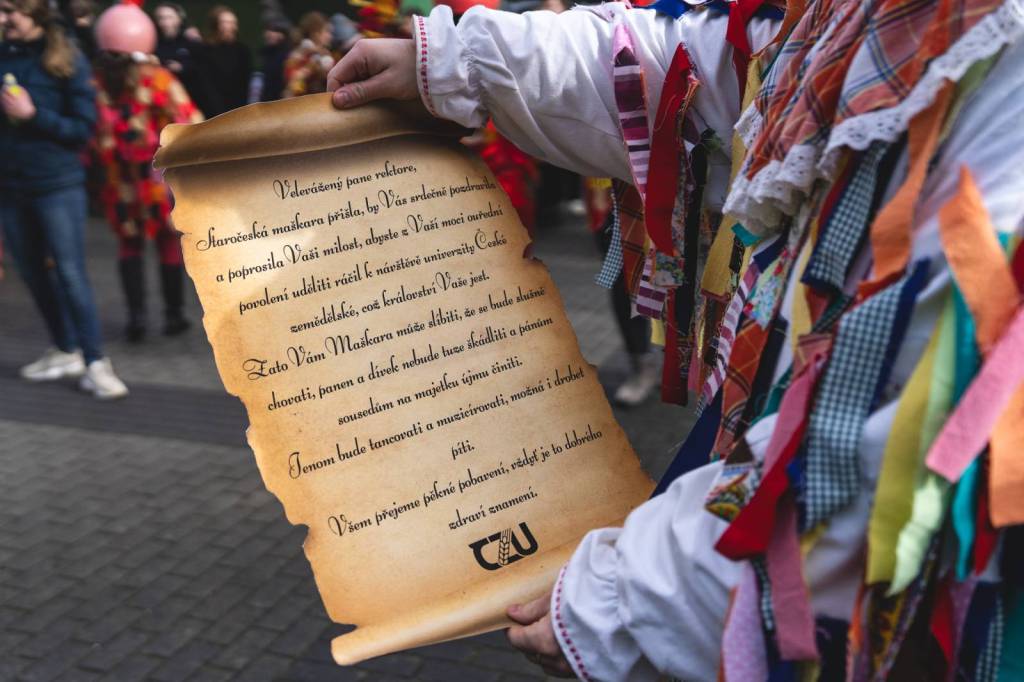 Velevážený pane rektore,
Staročeská maškara přišla, by Vás srdečně pozdravila
a poprosila Vaši milost, abyste z Vaší moci ouřední
povolení uděliti ráčil k návštěvě univerzity České
zemědělské, což království Vaše jest.
Zato Vám Maškara může slíbiti, že se bude slušně
chovati, panen a dívek nebude tuze škádliti a pánům
sousedům na majetku újmu činiti.
Jenom bude tancovati a muzicírovati, možná i drobet
píti.
Všem přejeme pěkné pobavení, vždyť je to dobrého
zdraví znamení.
CZU